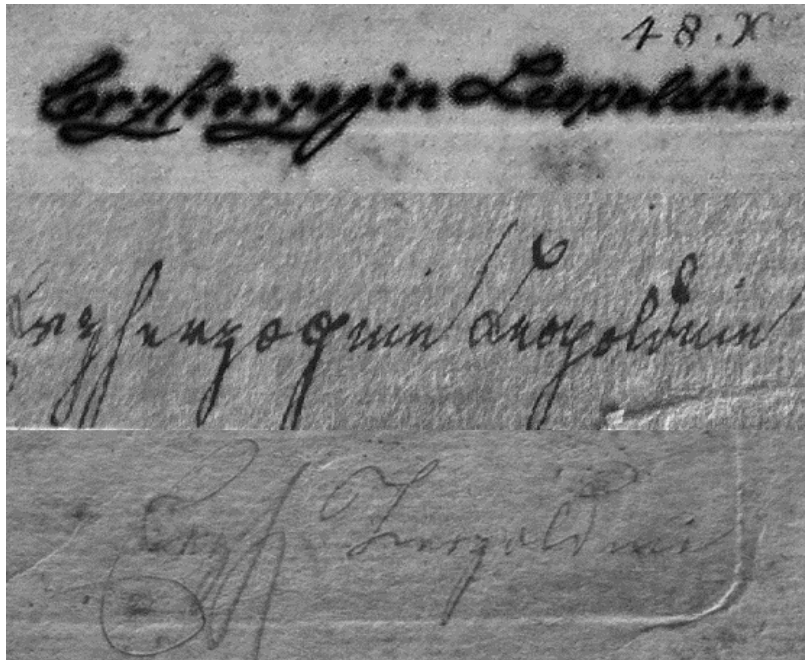 48.X
Erzherzogin Leopoldin.
Erzherzogin Leopoldine
Erzh. Leopoldine